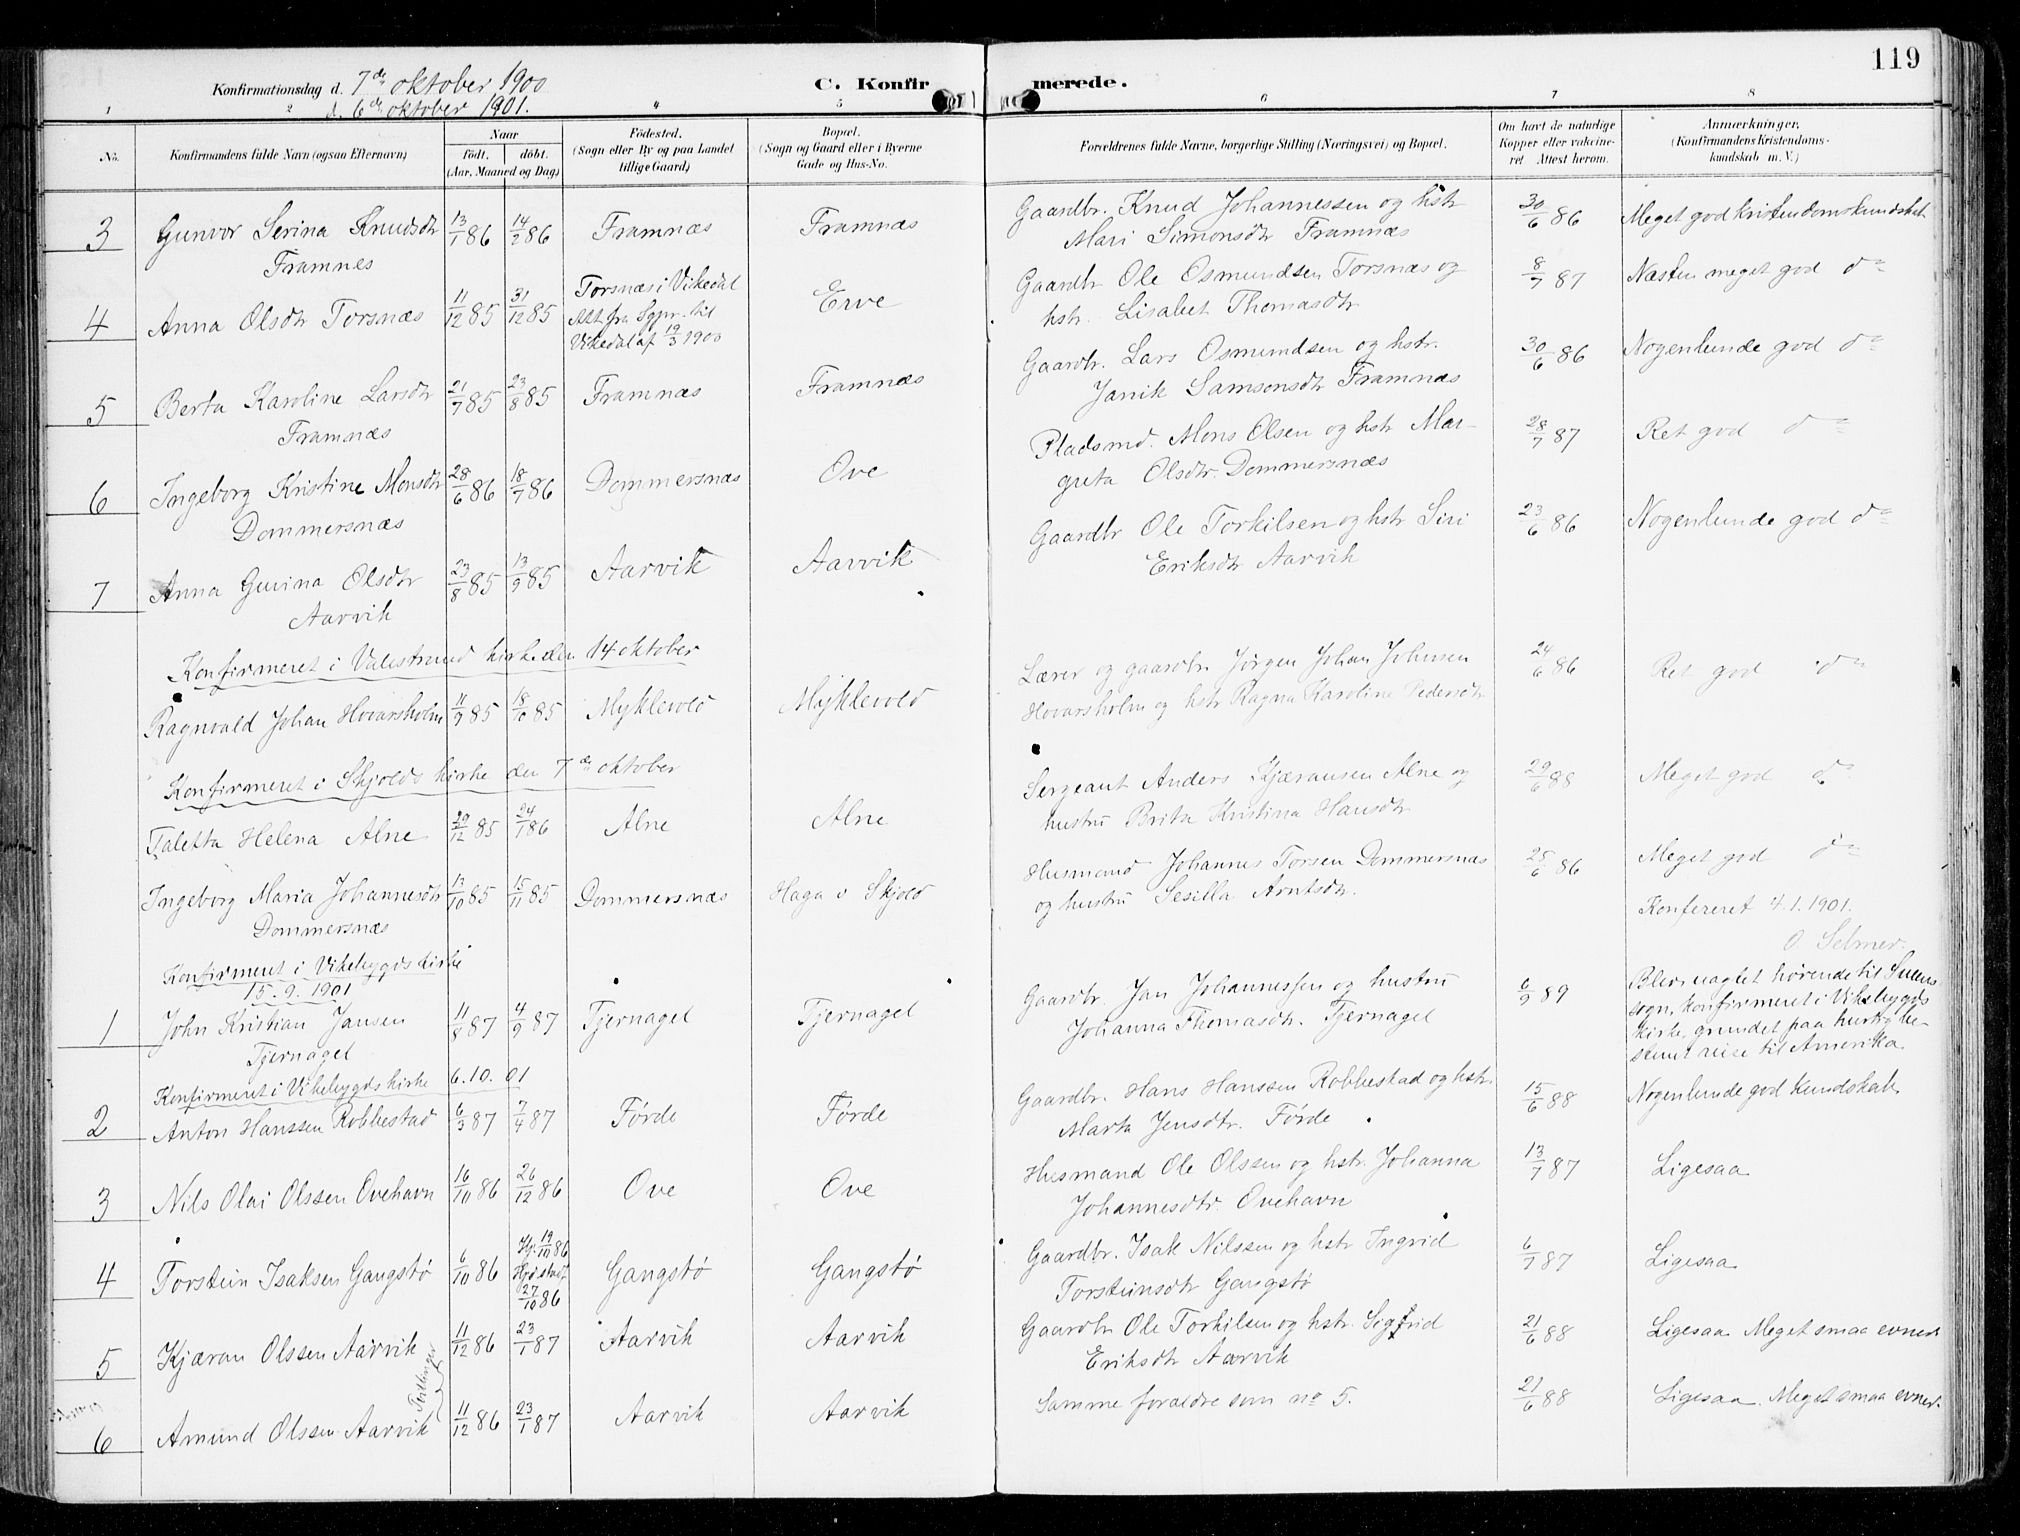 119
Konfirmationsdag d. 7de oktober 1900
d. 6te oktober 1901.
C. Konfirmerede.
1 2 4 5 6 7 8
No.
Konfirmandens fulde Navn (ogsaa Efternavn)
Naar
födt. döbt.
(Aar, Maaned og Dag)
Födested.
(Sogn eller By og paa Landet
tillige Gaard)
Bopæl.
(Sogn og Gaard eller i Byerne
Gade og Hus-No.
Forældrenes fulde Navne, borgerlige Stilling (Næringsvei) og Bopæl.
Om havt de naturlige
Kopper eller vakcine-
ret Attest herom.
Anmærkninger,
(Konfirmandens Kristendoms-
kundskab m. V.)
3 Gunvor Serina Knudsdtr 13/1 86 14/2 86 Framnæs Framnæs Gaardbr. Knud Johannessen og hstr 30/6 86 Meget god kristendomskundskab
Framnes Mari Simonsdtr Framnæs
4 Anna Olsdtr Torsnæs 11/12 85 31/12 85 Torsnæs i Vikedal Erve Gaardbr Ole Osmundsen Torsnæs og 8/7 87 Næsten meget god do
Att fra Sgpr. til hstr. Lisabet Thomasdtr
Vikedal af 19/3 1900
5 Berta Karoline Larsdtr 21/7 85 23/8 85 Framnæs Framnæs Gaardbr. Lars Osmundsen og hstr. 30/6 86 Nogenlunde god do
Framnæs Janik Samsonsdtr Framnæs
6 Ingeborg Kristine Monsdtr 28/6 86 18/7 86 Dommersnæs Ove Pladsmd. Mons Olsen og hstr Mar- 28/7 87 Ret god do
Dommersnæs greta Olsdtr. Dommersnæs
7 Anna Gurina Olsdtr 23/8 85 13/9 85 Aarvik Aarvik Gaardbr Ole Torkilsen og hstr Siri 23/6 86 Nogenlunde god do
Aarvik Eriksdtr Aarvik
Konfirmeret i Valestrand kirke den 14 oktober
Ragnvald Johan Hovarsholm 11/9 85 18/10 85 Myklevold Myklevold Lærer og gaardbr. Jørgen Johan Johnsen 24/6 86 Ret god do
Hovarsholm og hstr Ragna Karoline Pedersdtr
Konfirmeret i Skjolds kirke den 7de oktober
Taletta Helena Alne 29/12 85 24/1 86 Alne Alne Sergeant Anders Kjæransen Alne og 29/6 88 Meget god do
hustru Brita Kristina Hansdtr
Ingeborg Maria Johannesdtr 13/10 85 15/11 85 Dommersnæs Haga i Skjold Husmand Johannes Torsen Dommersnæs 25/6 86 Meget god do
Dommersnæs og hustru Sesilla Arntsdtr.
Konfereret 4.1.1901.
O. Selmer
Konfirmeret i Vikebygds kirke
15.9.1901
1 John Kristian Jansen 11/8 87 4/9 87 Tjernagel Tjernagel Gaardbr. Jan Johannessen og hustru 6/9 89 Blev uagtet hørende til Sveens
Tjernagel Johanna Thomasdtr. Tjernagel sogn, konfirmeret i Vikebygds
kirke, grundet paa hurtig be-
stemt reise til Amerika.
Konfirmeret i Vikebygds kirke 6.10.01
2 Anton Hanssen Robbestad 6/3 87 7/4 87 Førde Førde Gaardbr. Hans Hanssen Robbestad og hstr. 15/6 88 Nogenlunde god kundskab
Marta Jensdtr. Førde
3 Nils Olai Olssen Ovehavn 16/10 86 26/12 86 Ove Ove Husmand Ole Olssen og hstr. Johanna 13/7 87 Ligesaa
Johannesdtr. Ovehavn
4 Torstein Isaksen Gangstø 6/10 86 Hj. 19/10 86 Gangstø Gangstø Gaardbr. Isak Nilssen og hstr Ingrid 6/7 87 Ligesaa
27/10 86 Torsteinsdtr Gangstø
5 Kjæran Olssen Aarvik 11/12 86 23/1 87 Aarvik Aarvik Gaardbr Ole Torkilsen og hstr. Sigfrid 21/6 88 Ligesaa Meget smaa evner
Eriksdtr Aarvik
Tvillinger
6 Amund Olssen Aarvik 11/12 86 23/1 87 Aarvik Aarvik Samme forældre som no 5. 21/6 88 Ligesaa. Meget smaa evner.